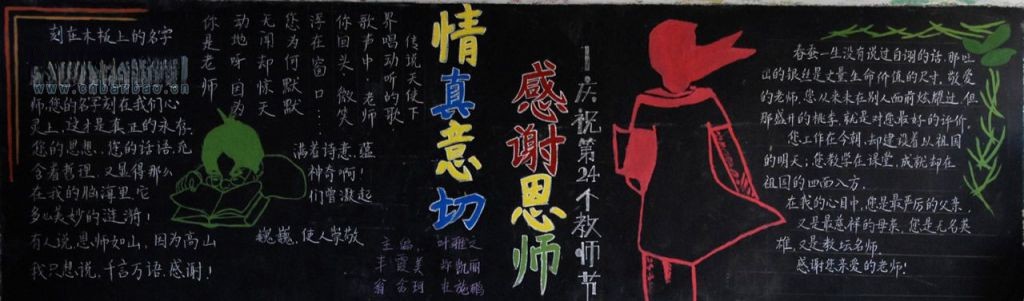 刻在木板上的名字
师,您的名字刻在我们心
灵上,这才是真正的永存。
您的思想,您的话语,充
含着哲理,又显得那么
在我的脑海里它
多么美妙的涟漪!
有人说,恩师如山,因为高山
我只想说,千言万语,感谢!
巍巍,使人崇敬
满着诗意,蕴
神奇啊!
们曾激起
传说天使下
界唱动听的歌
歌声中,老师
你回头,微笑
浮在窗口:
您为何默默
无闻却惊天
动地听因为
你是老师
情真意切
感谢恩师
庆祝第24个教师节
主编:
春蚕一生没有说过自诩的话,那吐
出的银丝是丈量生命价值的尺寸。敬爱
的老师,您从来未在别人面前炫耀过,但
那盛开的桃李,就是对您最好的评价。
您工作在今朝,却建设着以祖国
的明天;您教学在课堂,成就却在
祖国的四面八方。
在我的心目中,您是最严厉的父亲,
又是最慈祥的母亲,您是无名英
雄,又是教坛名师。
感谢您亲爱的老师!